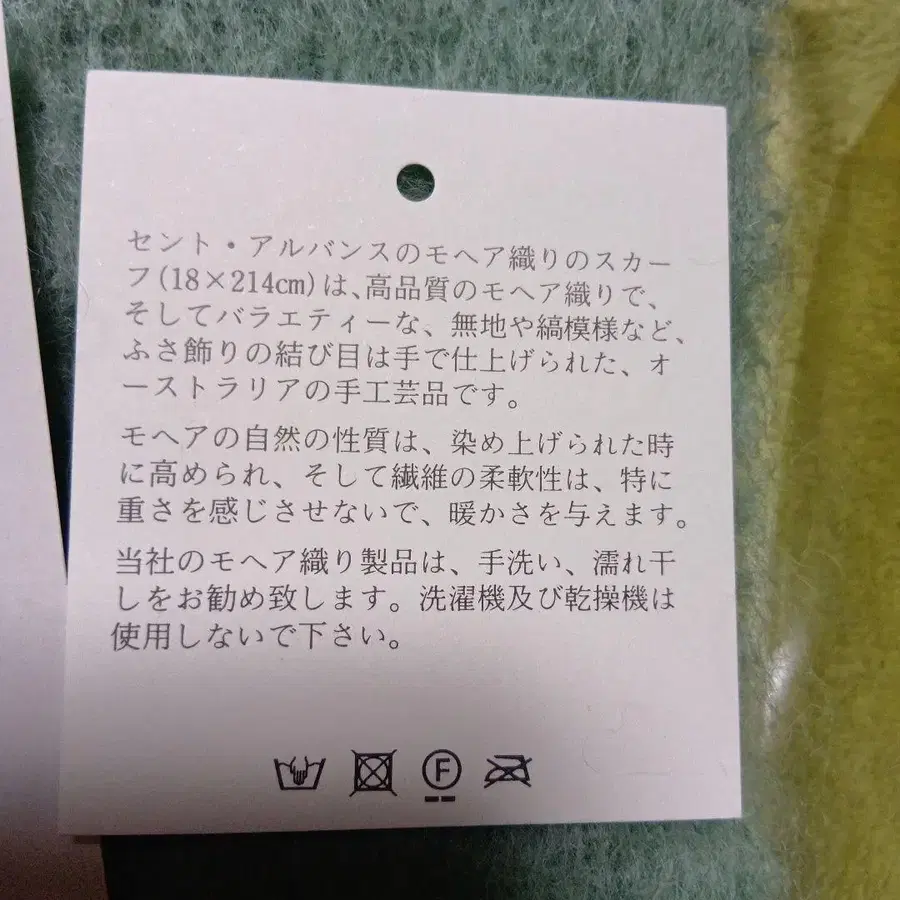 セント・アルバンスのモヘア織りのスカー
フ(18×214cm)は、高品質のモヘア織りで、
そしてバラエティーな、無地や縞模様など、
ふさ飾りの結び目は手で仕上げられた、オ
ーストラリアの手工芸品です。
モヘアの自然の性質は、染め上げられた時
に高められ、そして繊維の柔軟性は、特に
重さを感じさせないで、暖かさを与えます。
当社のモヘア織り製品は、手洗い、濡れ干
しをお勧め致します。洗濯機及び乾操機は
使用しないで下さい。
F